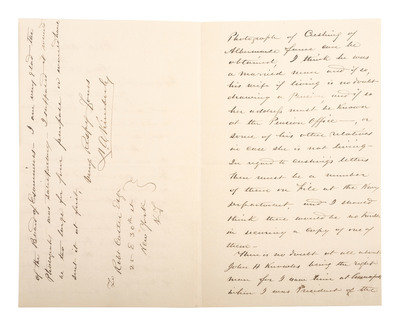 Photographs of Cushing of
Albemarle fame can be
obtained, I think he was
a married man and if so,
his wife if living is no doubt
drawing a pension and if so
her address must be known
at the Pension Office —, or
some of his other relatives
in case she is not living —
In regard to Cushings letters
there must be a number
of them on file at the Navy
Department, and I should
think there would be no trouble
in securing a copy of one of
them —
There is no doubt at all about
John H Knowles being the right
man for I saw him at Annapolis
when I was President of the
of the Board of Examiners — I am very glad the
Photograph was satisfactory. I supposed it would
be too large for your purpose as somewhere
sure it at first.
Very Truly Yours
L A Kimberly
To
Esq
25 E 30th St
New York
N.Y.